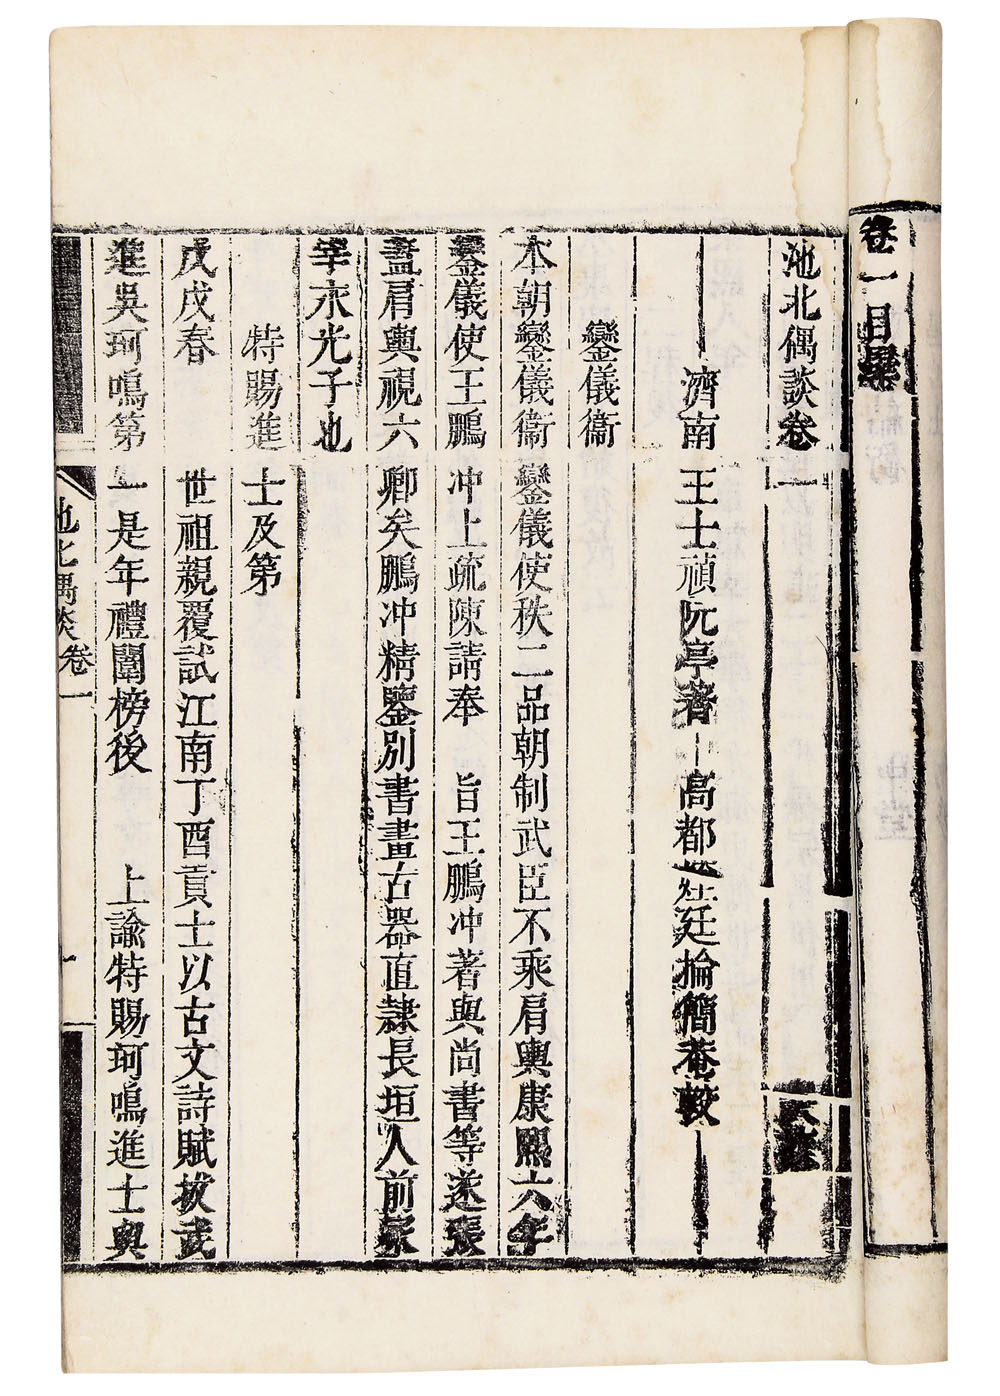 卷一目
池北偶談卷一
濟南 王士禎阮亭著 高都 廷掄簡菴較
鑾儀衞
本朝鑾儀衞鑾儀使秩二品朝制武臣不乘肩輿康熙六年
鑾儀使王鵬冲上疏陳請奉 旨王鵬冲著與尚書等遂張
蓋肩輿視六卿矣鵬冲精鑒別書畫古器直隷長垣人前冢
宰永光子也
特賜進士及第
戊戌春 世祖親覆試江南丁酉貢士以古文詩賦拔武
進吳珂鳴第一是年禮闈榜後 上諭特賜珂鳴進士與
池北偶談 卷一